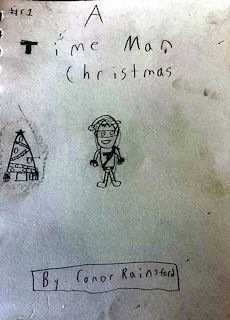 #c1
A
Time Man
Christmas
By: Conor Rainsford